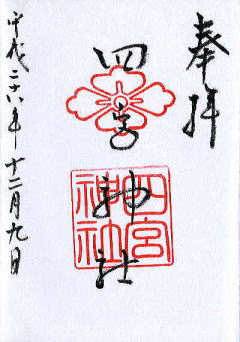 奉拝
四宮神社
四宮神社
平成二十六年十二月九日